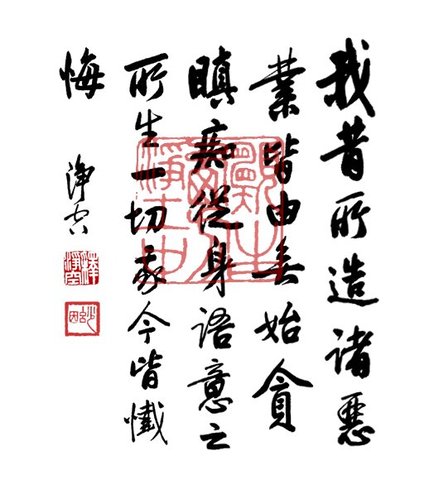 我昔所造諸惡
業皆由無始貪
瞋痴從身語意之
所生一切我今皆懺
悔
淨空
釋淨空